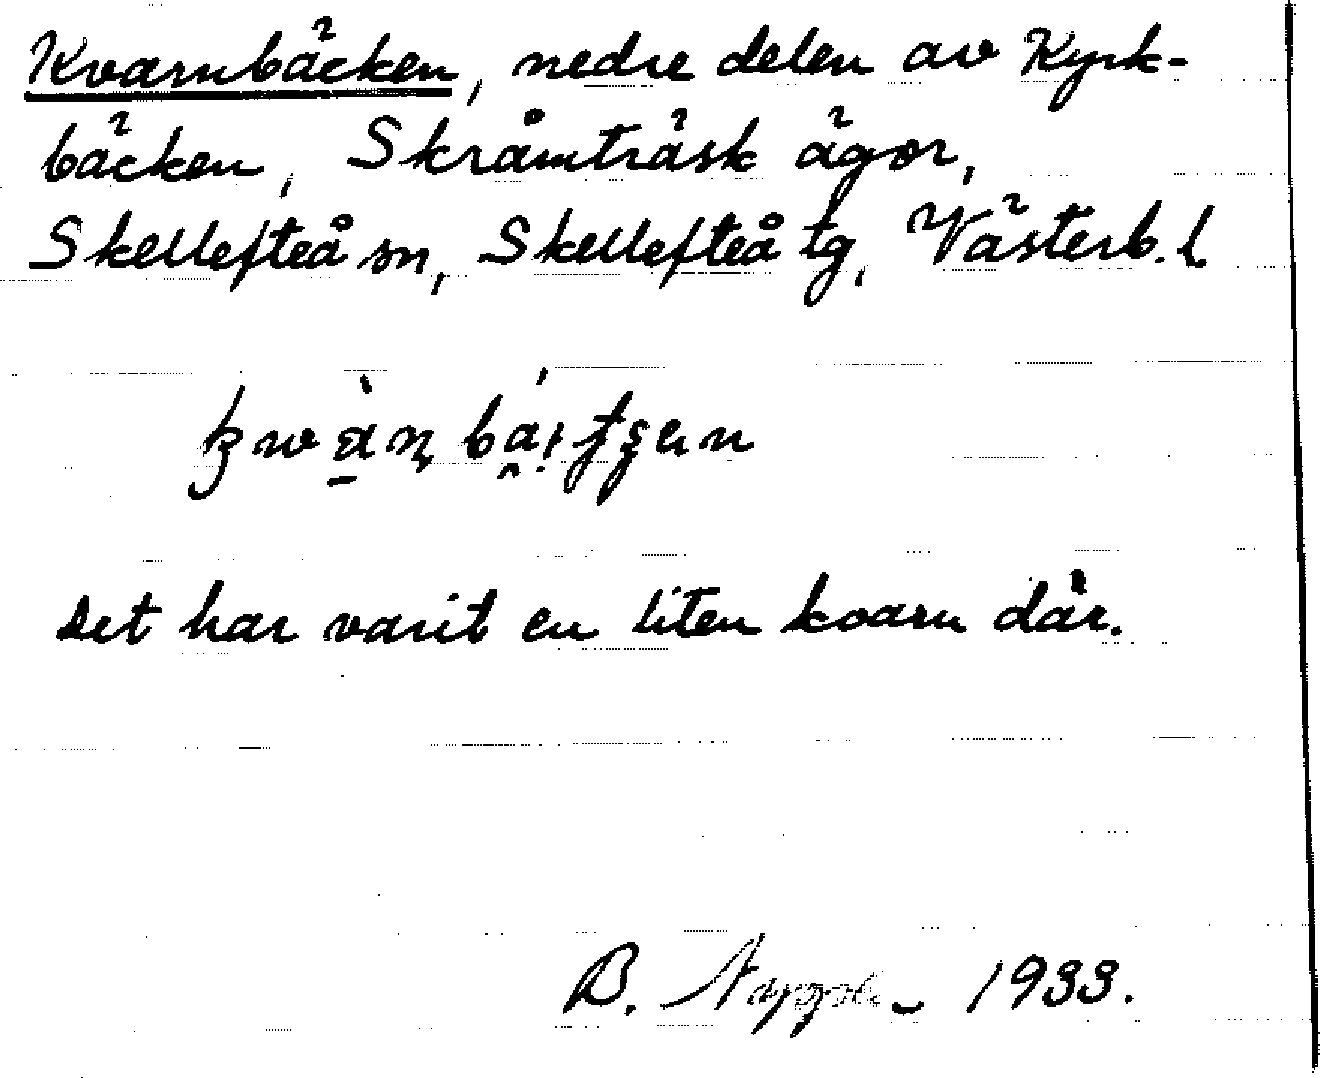 Kvarnbäcken, nedre delen av Kyrk-
bäcken, Skråmträsk ägor,
Skellefteå sn, Skellefteå tg, Västerb. l
Det har varit en liten kvarn där.
B. 1933.